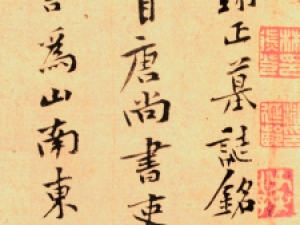 正墓誌銘
唐尚書吏
為山南東